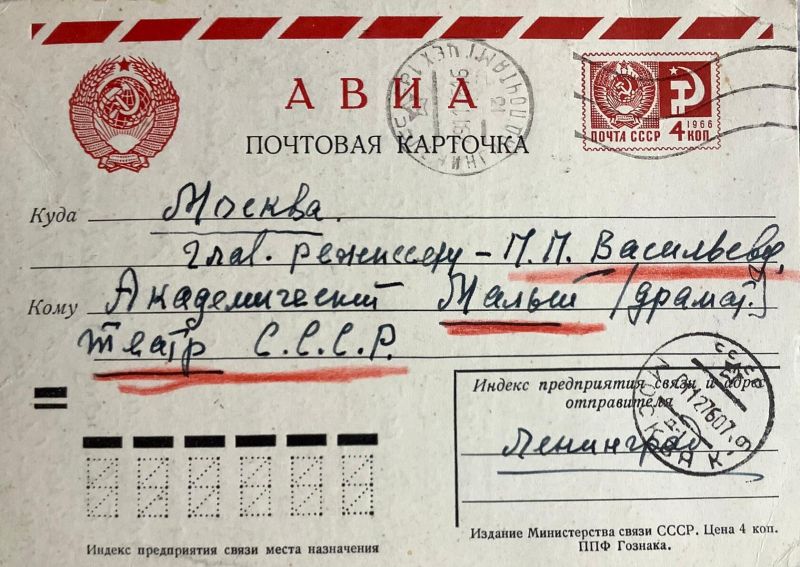 АВИА
ПОЧТОВАЯ КАРТОЧКА
ПОЧТА СССР 4 КОП
1966
Куда Москва.
Глав. режиссеру – П. П. Васильеву,
Кому Академический Малый (драмат.)
театр С.С.С.Р.
Индекс предприятия связи и адрес
отправителя
Ленинград
СССР
МОСКВА К-9
Индекс предприятия связи места назначения
Издание Министерства связи СССР. Цена 4 коп.
ППФ Гознака.